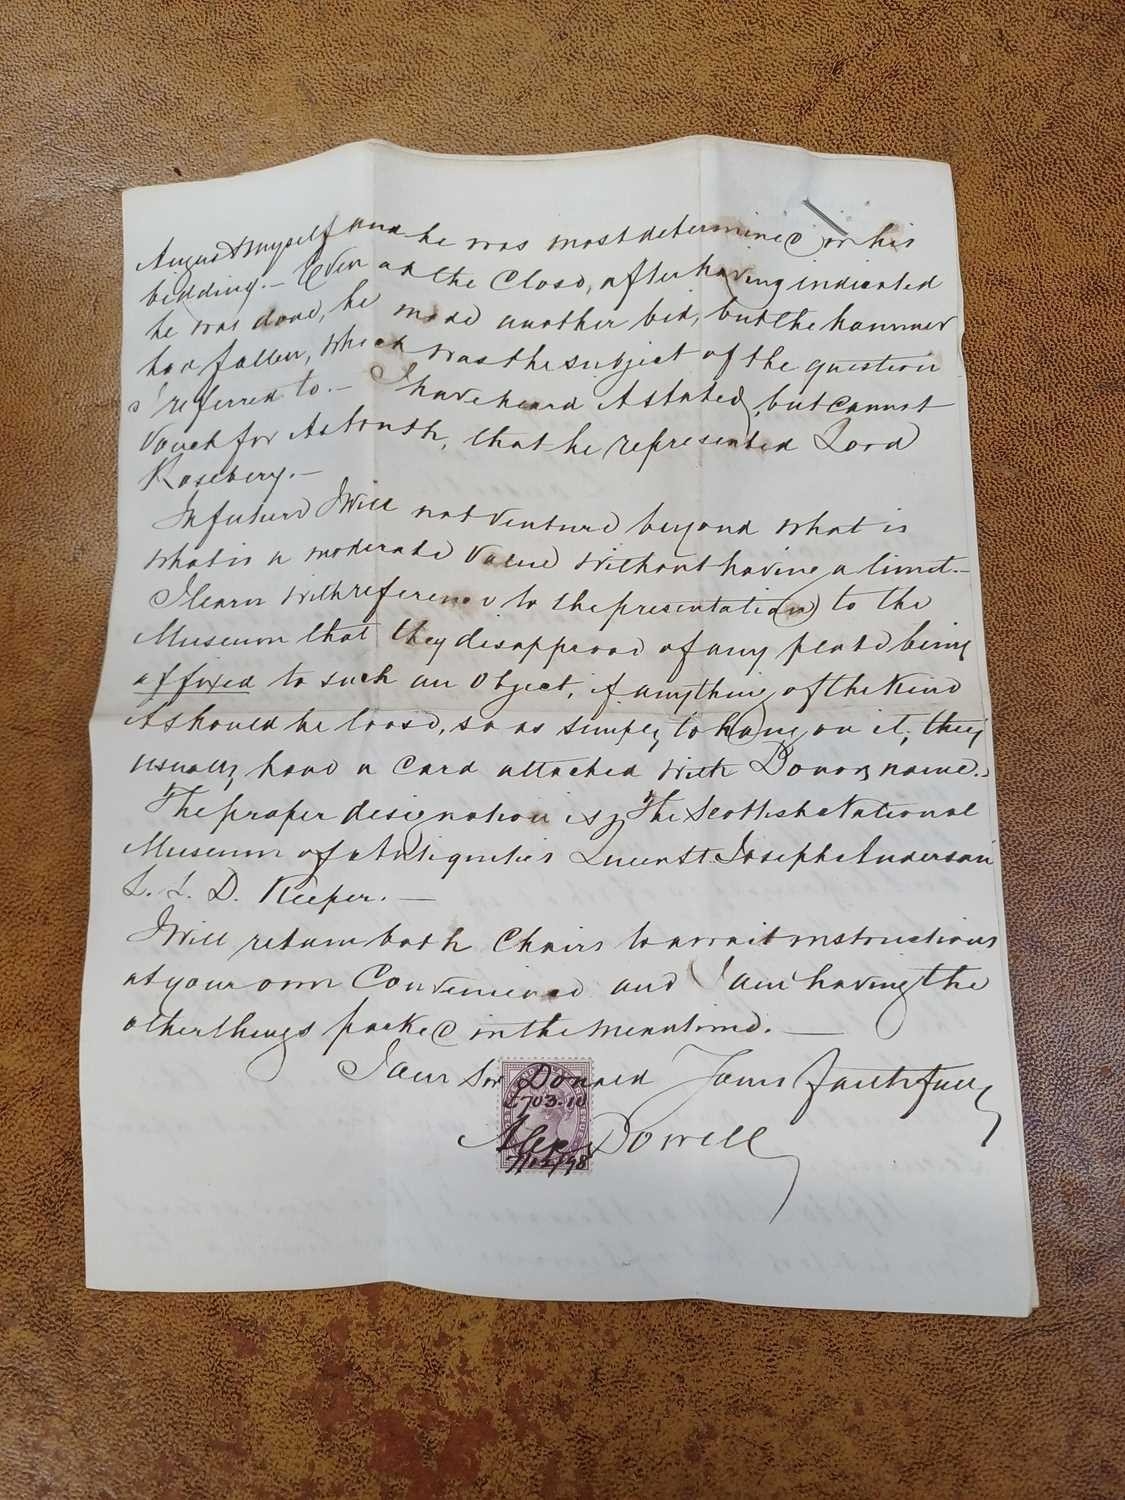 August & myself and he was most determined in his
bidding. – Even at the close, after having indicated
he was done, he made another bid, but the hammer
had fallen, which was the subject of the question
I referred to. – I have heard it stated, but cannot
vouch for its truth, that he represented Lord
Rosebery. –
In future I will not venture beyond what is
what is a moderate value without having a limit. –
I learn with reference to the presentation to the
Museum that they disapprove of any plate being
affixed to such an object, if anything of the kind
it should be loose, so as simply to hang on it, they
usually have a card attached with Donors name. –
The proper designation is, The Scottish National
Museum of Antiquities Queen St Joseph Anderson
L. L. D. Keeper. –
I will return both Chairs to await instructions
at your own Convenience and I am having the
other things packed in the meantime. –
I am Sir Donald Yours faithfully
£703.10
Alex Dowell